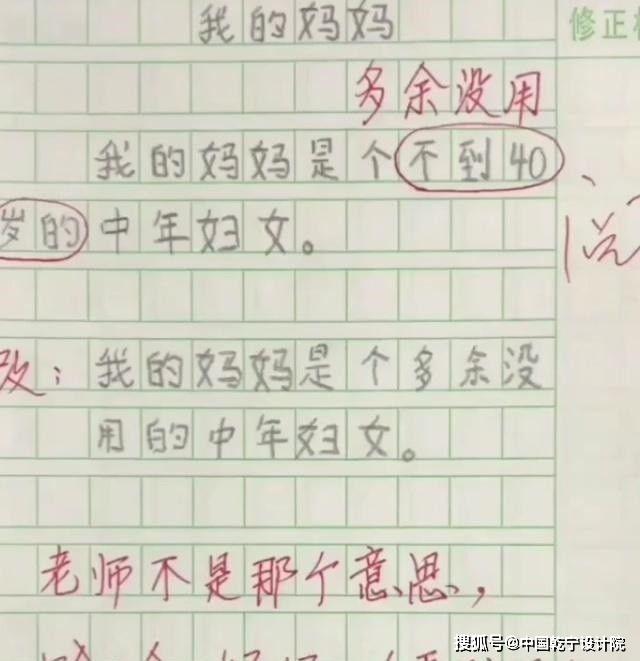 我的妈妈
修正
多余没用
我的妈妈是个不到40
岁的中年妇女。
改：我的妈妈是个多余没
用的中年妇女。
老师不是那个意思，
搜狐号@中国乾宁设计院